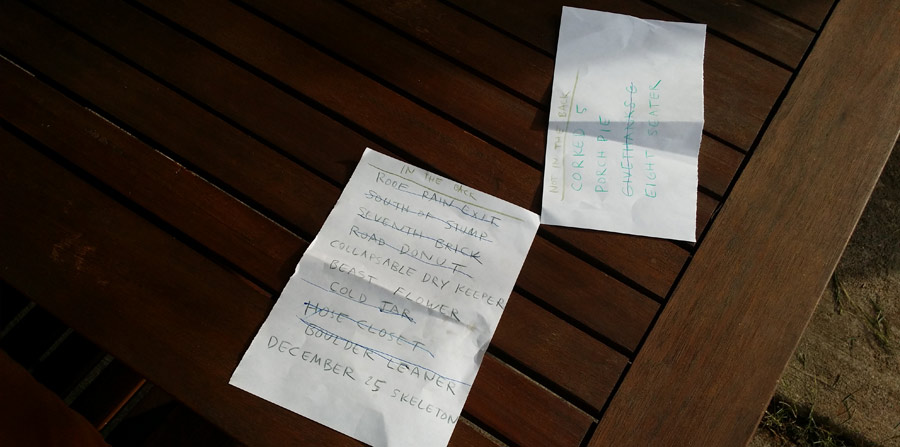 IN THE BACK
ROOF RAIN EXIT
SOUTH OF SUMP
SEVENTH BRICK
ROAD DONUT
COLLAPSABLE DRY KEEPER
BEAST FLOWER
COLD JAR
HOSE CLOSET
BOULDER LEANER
DECEMBER 25 SKELETON
NOT IN THE BACK
CORKED 5
PORCH PIE
GIVETHANKS 6
EIGHT SEATER